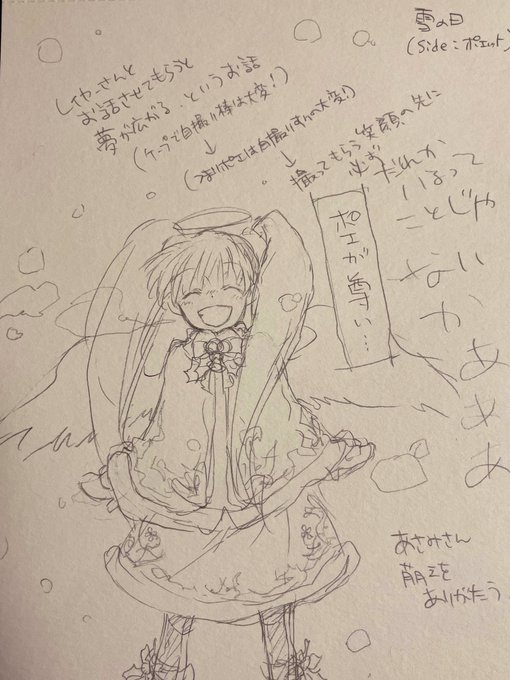 雪の日
(Side:ポエット)
しゃゃさんと
お話させてもらうと
夢が広がる、というお話
(ケープで自撮り棒は大変!)
↓
(つまりポエは自撮りすんの大変!)
↓
撮ってもらう笑顔の先に
必ずだれか
いるって
ことじゃ
ないかあああ
ポエが尊い…
あさみさん
萌えを
ありがたう